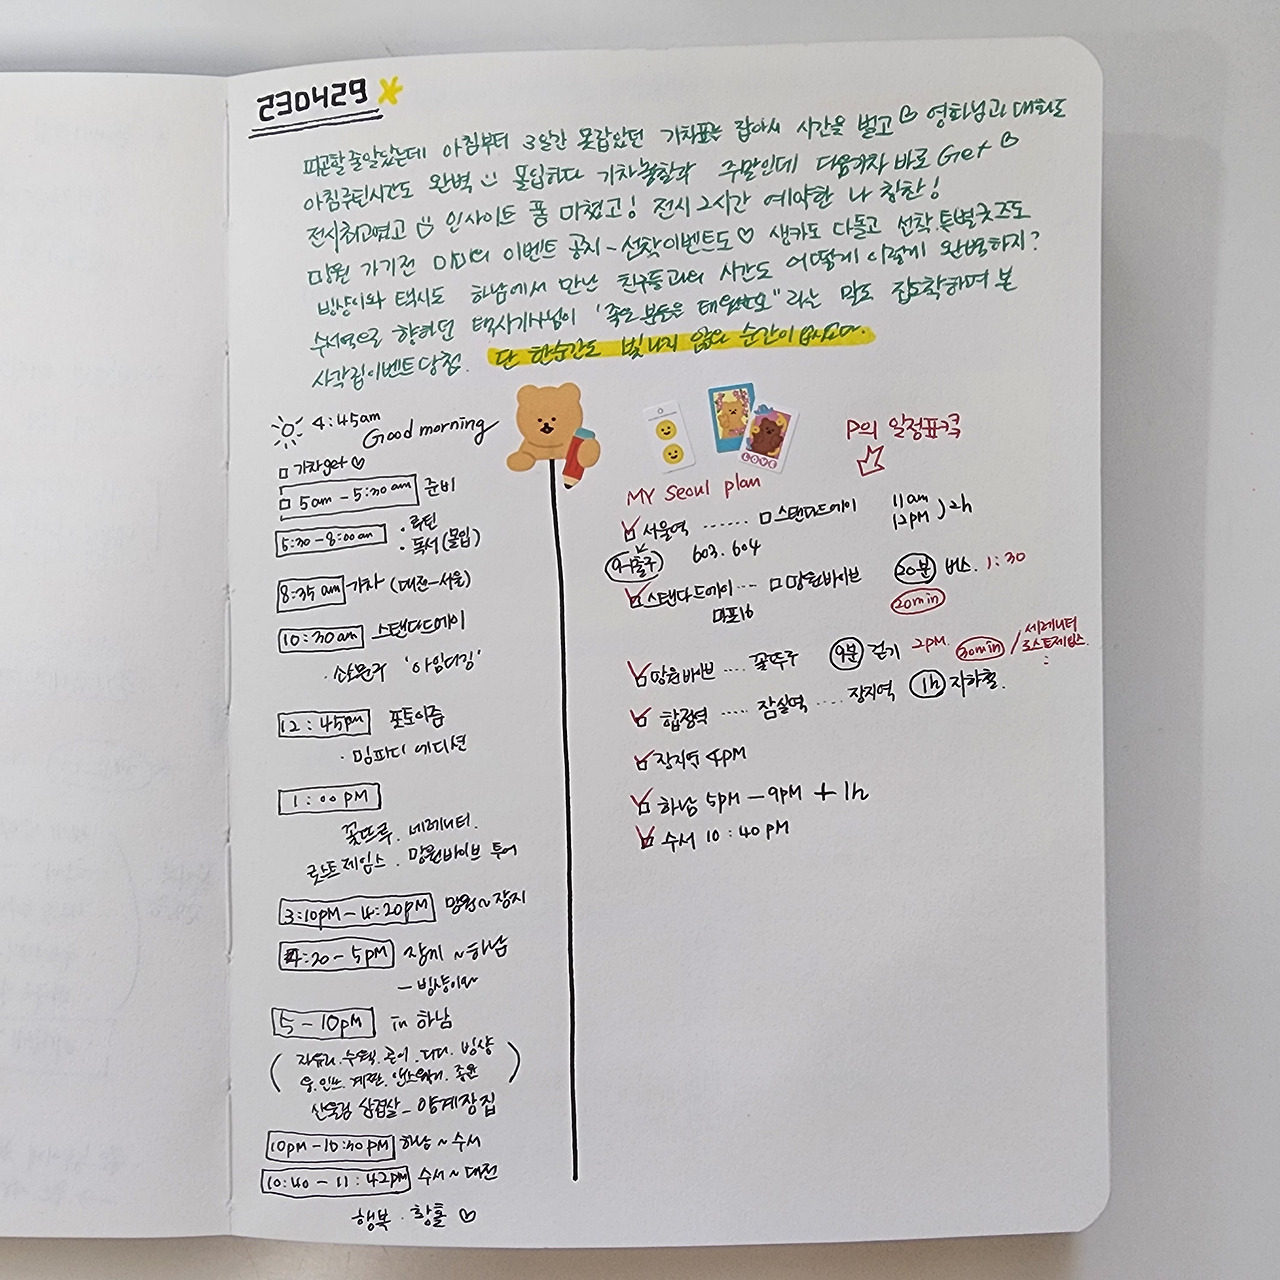 230429
피곤할줄알았는데 아침부터 3일간 못잡았던 기차표는 잡아서 시간을 벌고 영화님과 대화도
아침루틴시간도 완벽 몰입하다 기차놓칠과 주말인데 다음기차 바로 Get
전시최고였고 인사이트 폼 미쳤고! 전시 2시간 예약한 나 칭찬!
망원 가기전 미미의 이벤트 공지~선착이벤트도 ♡ 생카도 다돌고 선착.특별굿즈도
빙샹이와 택시도 하남에서 만난 친구들과의 시간도 어떻게 이렇게 완벽하지?
수서역으로 향하던 택시기사님이 "좋은 분들을 태웠네요" 라는 말도 집도착하며 본
사각집이벤트당첨. 단 한순간도 빛나지 않은 순간이 없었다.
4:45am
Good morning
□ 기차get ♡
□ 5am - 5:30 am 준비
5:30 - 8:00am · 루틴
· 독서(몰입)
8:35 am 기차 (대전-서울)
10:30am 스탠다드에이
· 소문구 '아임디깅'
12:45pm 포토이즘
· 밈파디 에디션
1:00 PM
꽃뜨루. 세레니티.
로스트제임스. 망원바이브 투어
3:10PM - 4:20PM 망원~장지
4:20 - 5PM 장지 ~하남
- 빙샹이와
5 - 10PM in 하남
산울림 삼겹살 - 양계장집
10PM - 10:30PM 하남 ~ 수서
10:40 - 11:42PM 수서 ~ 대전
행복 · 황홀 ♡
LOVE
P의 일정표ㅋㅋ
MY Seoul plan
서울역 ······ □스탠다드에이 11am
12PM ) 2h
9-1출구 603. 604
스탠다드에이 ··· □망원바이브 20분 버스. 1:30
마포16 20min
망원바이브 ···· 꽃뜨루 9분 걷기 2PM. 30min / 세레니티
로스트제임스
합정역 ····· 잠실역 ····· 장지역 1h 지하철.
장지역 4PM
하남 5PM - 9PM + 1h
수서 10:40 PM